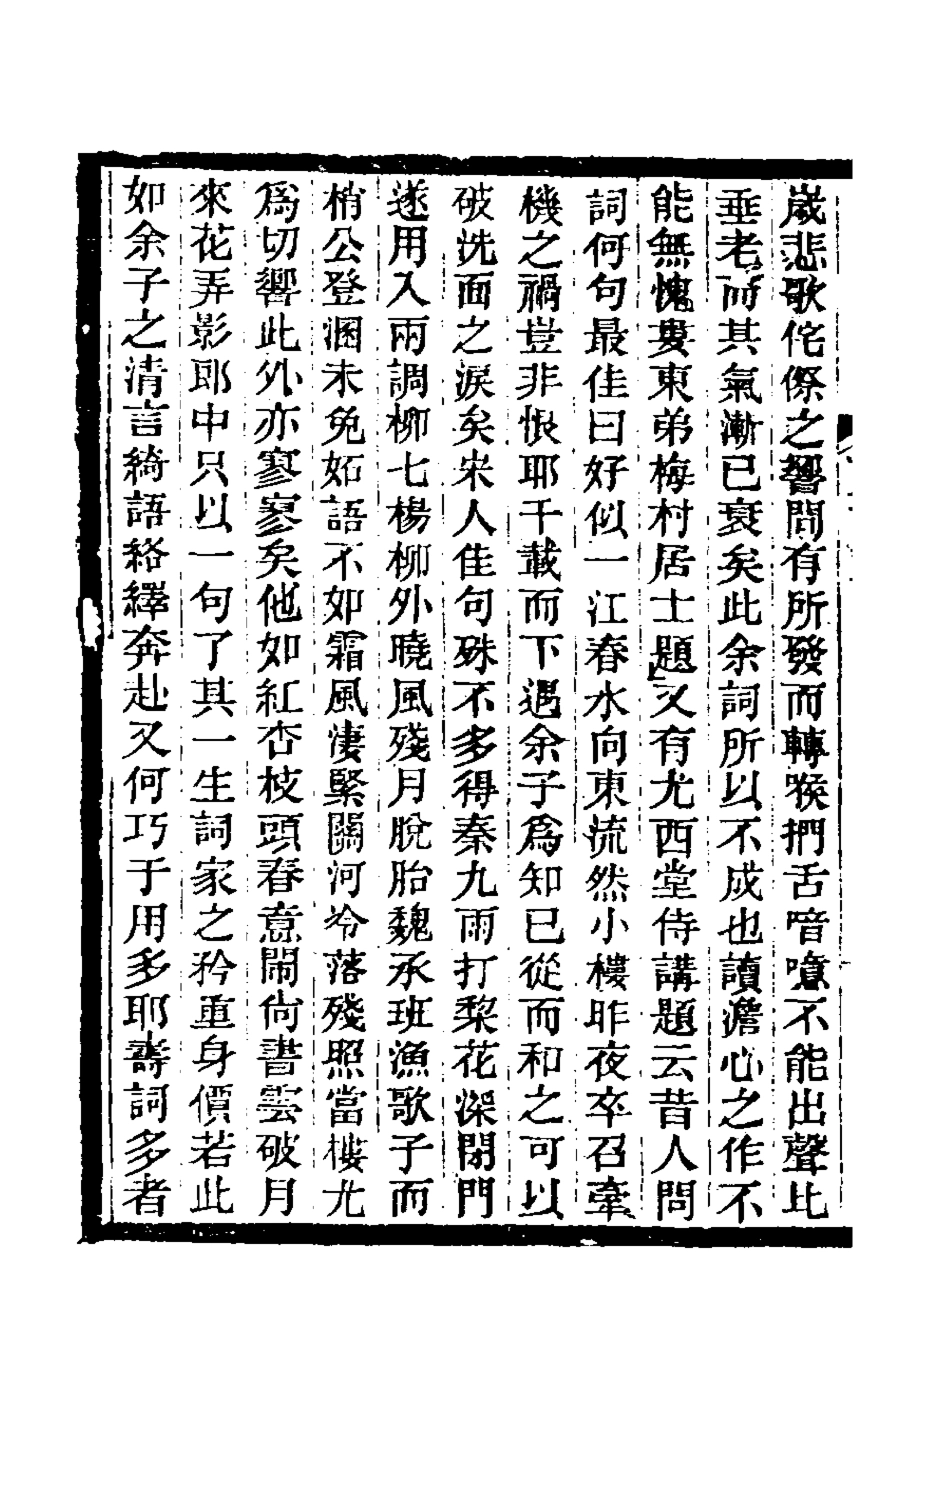 歲悲歌侘傺之響間有所發而轉喉捫舌喑噫不能出聲比
垂老而其氣漸已衰矣此余詞所以不成也讀澹心之作不
能無愧婁東弟梅村居士題又有尤西堂侍講題云昔人問
詞何句最佳曰好似一江春水向東流然小樓昨夜卒召牽
機之禍豈非恨耶千載而下遇余子爲知已從而和之可以
破洗面之淚矣宋人佳句殊不多得秦九雨打梨花深閉門
遂用入兩調柳七楊柳外曉風殘月脫胎魏承班漁歌子而
梢公登溷未免妬語不如霜風淒緊關河冷落殘照當樓尤
爲切響此外亦寥寥矣他如紅杏枝頭春意鬧尚書雲破月
來花弄影郎中只以一句了其一生詞家之矜重身價若此
如余子之清言綺語絡繹奔赴又何巧于用多耶壽詞多者